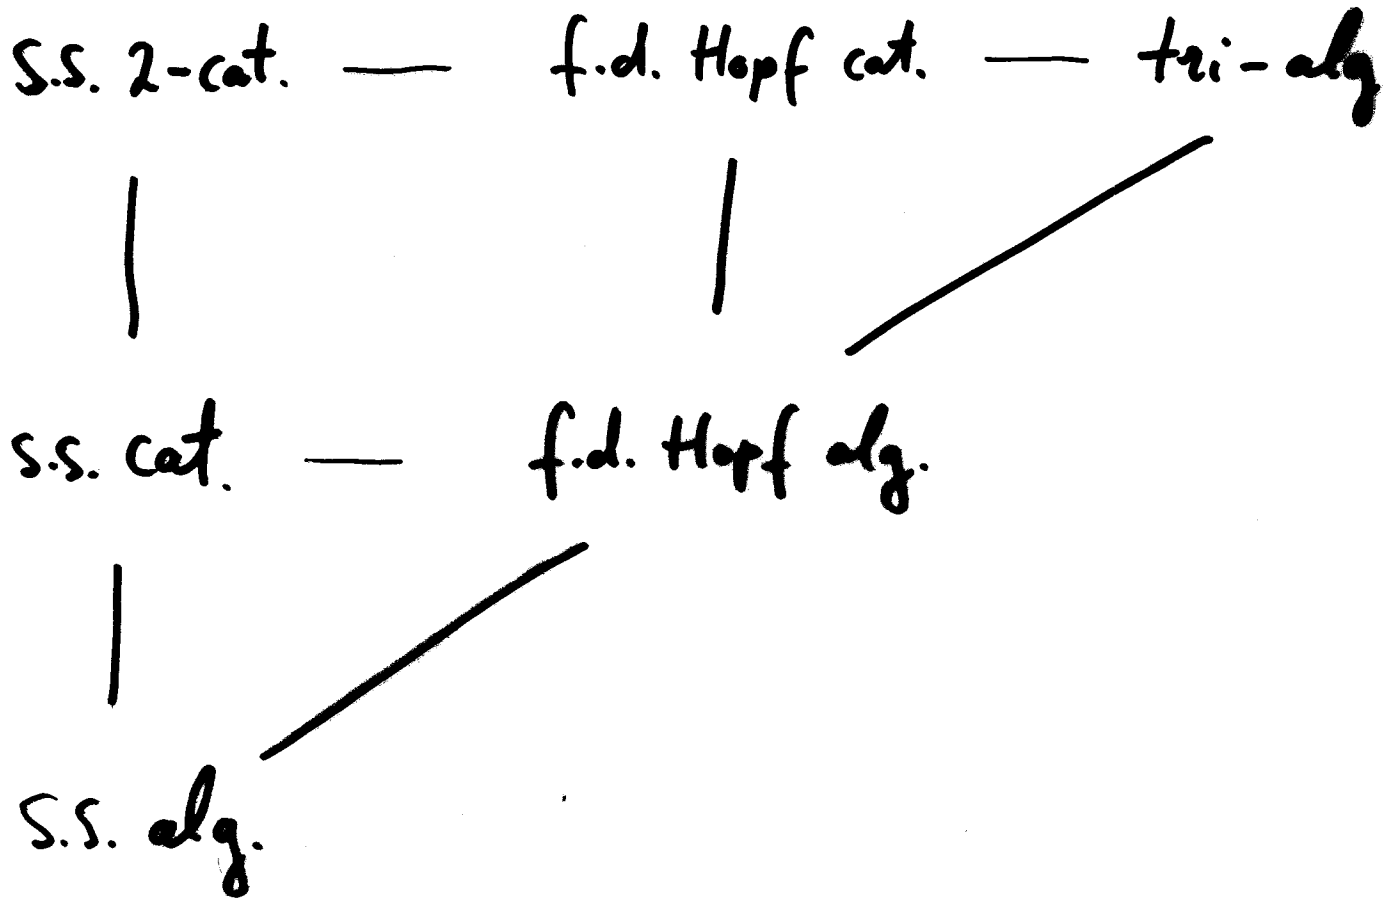 s.s. 2-cat. — f.d. Hopf cat. — tri-alg
s.s. cat. — f.d. Hopf alg.
s.s. alg.